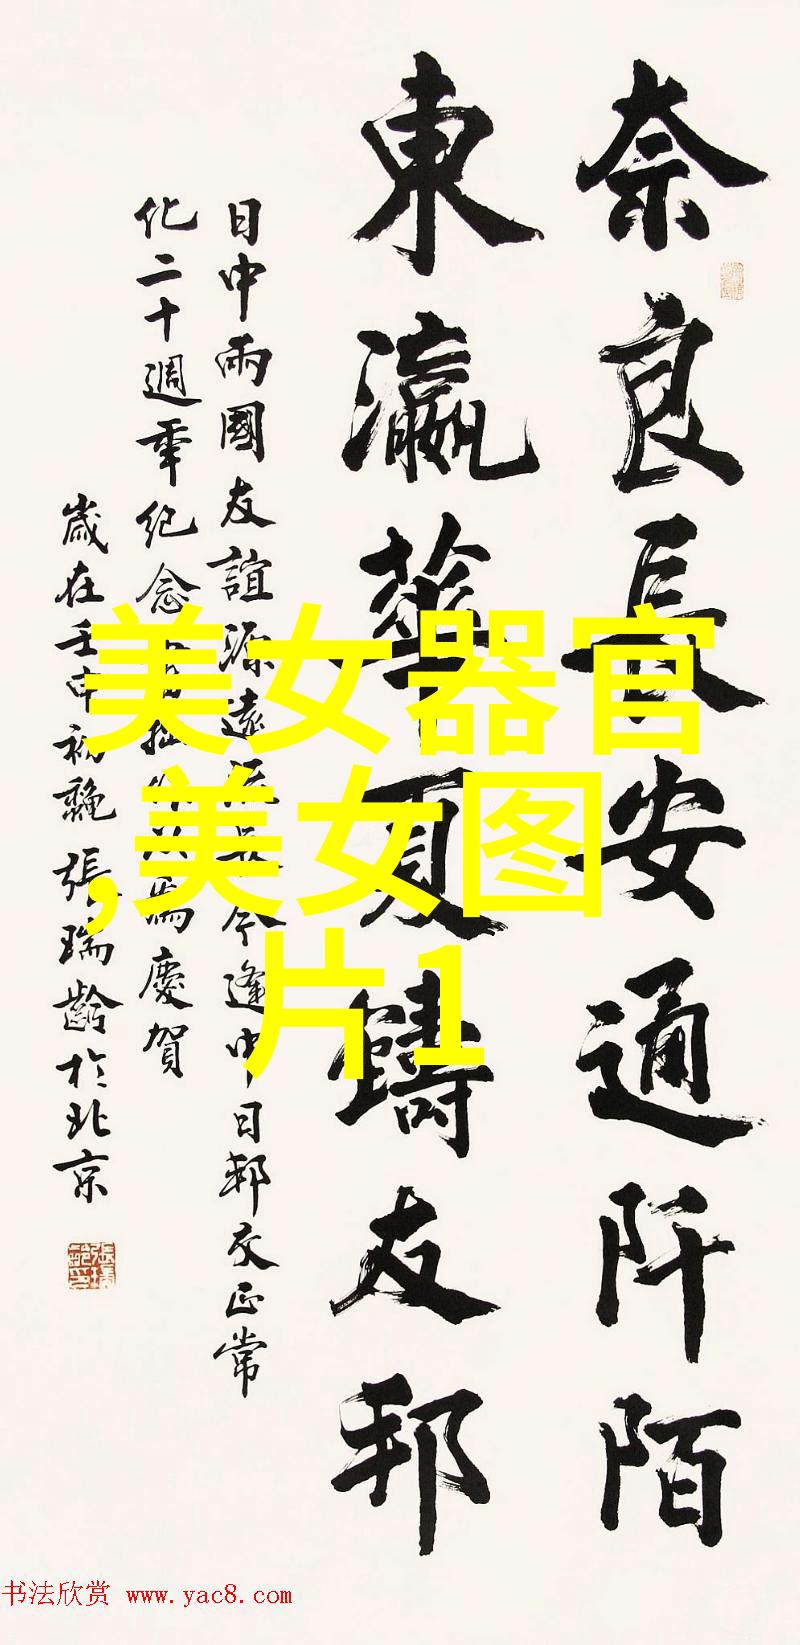 奈良長安通阡陌
東瀛華夏鑄友邦
日中兩國友誼源遠流長今逢中日邦交正常
化二十週年紀念
為慶賀
歲在壬申初
張瑞齡於北京
美女器官
,美女图
片1
书法欣赏 www.yac8.com